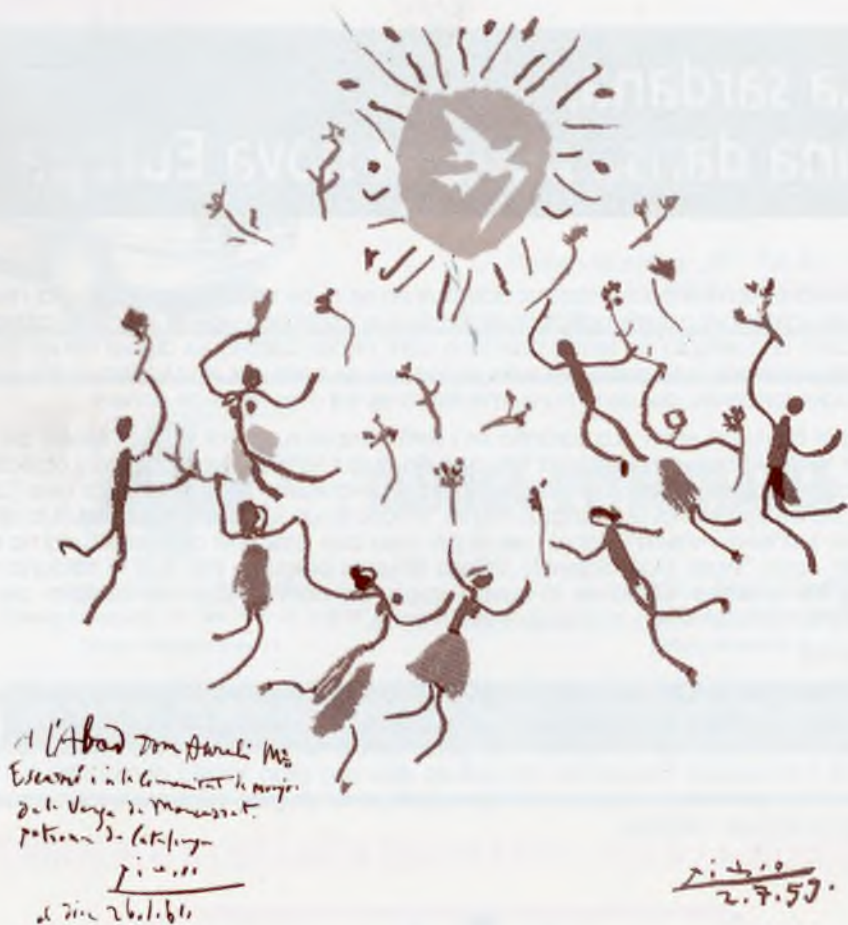 A l'Abad Dom Aureli Mª
Escarré i a la Comunitat de monjos
de la Verge de Montserrat.
patrona de Catalunya
Picasso
el dia 26.1.61
Picasso
2.7.59.